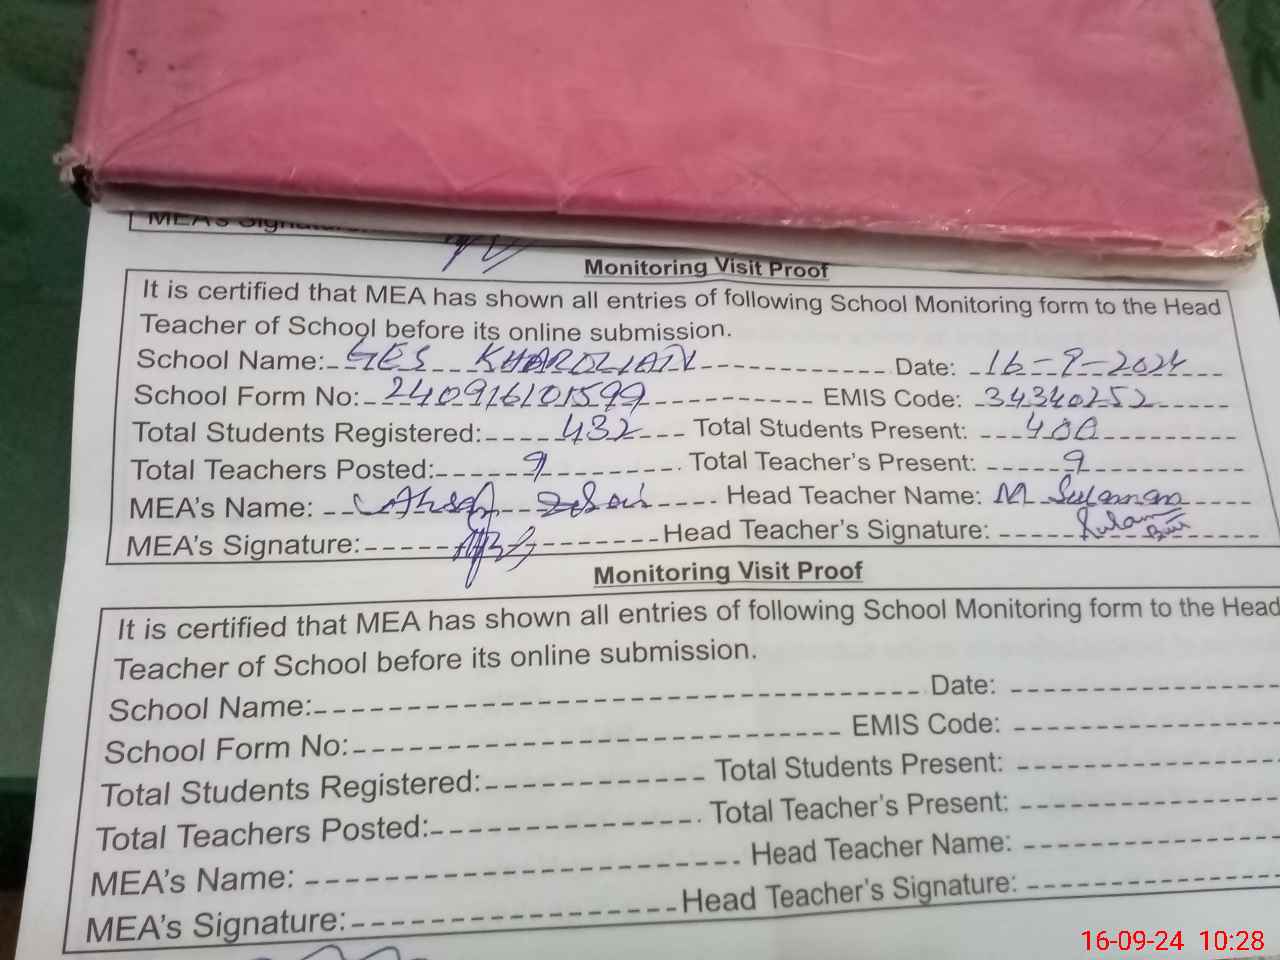 MEA's Signature:
Monitoring Visit Proof
It is certified that MEA has shown all entries of following School Monitoring form to the Head
Teacher of School before its online submission.
School Name: GES KHAROLIAN Date: 16-9-2024
School Form No: 240916101599 EMIS Code: 34340252
Total Students Registered: 432 Total Students Present: 400
Total Teachers Posted: 9 Total Teacher's Present: 9
MEA's Name: Head Teacher Name: M Sulaman
MEA's Signature: Head Teacher's Signature: Sulam
Monitoring Visit Proof
It is certified that MEA has shown all entries of following School Monitoring form to the Head
Teacher of School before its online submission.
School Name: Date:
School Form No: EMIS Code:
Total Students Registered: Total Students Present:
Total Teachers Posted: Total Teacher's Present:
MEA's Name: Head Teacher Name:
MEA's Signature: Head Teacher's Signature:
16-09-24 10:28